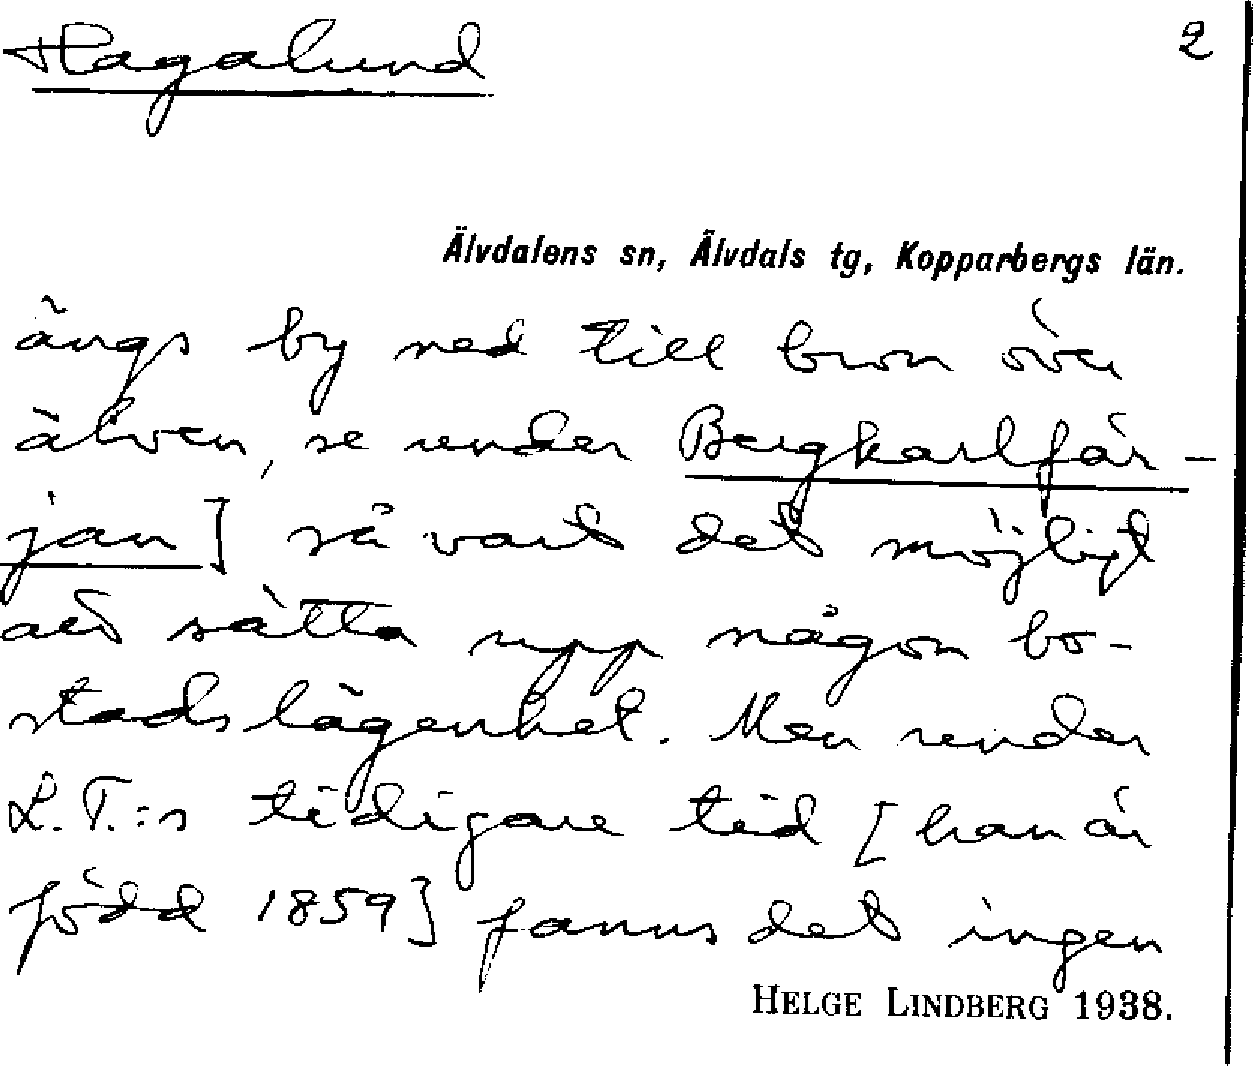 Hagalund 2
Älvdalens sn, Älvdals tg, Kopparbergs län.
ängs by ned till bron över
älven, se under Bergkarlfär-
jan] så vart det möjligt
att sätta upp någon bo-
stadslägenhet. Men under
L.T.:s tidigare tid [han är
född 1859] fanns det ingen
HELGE LINDBERG 1938.